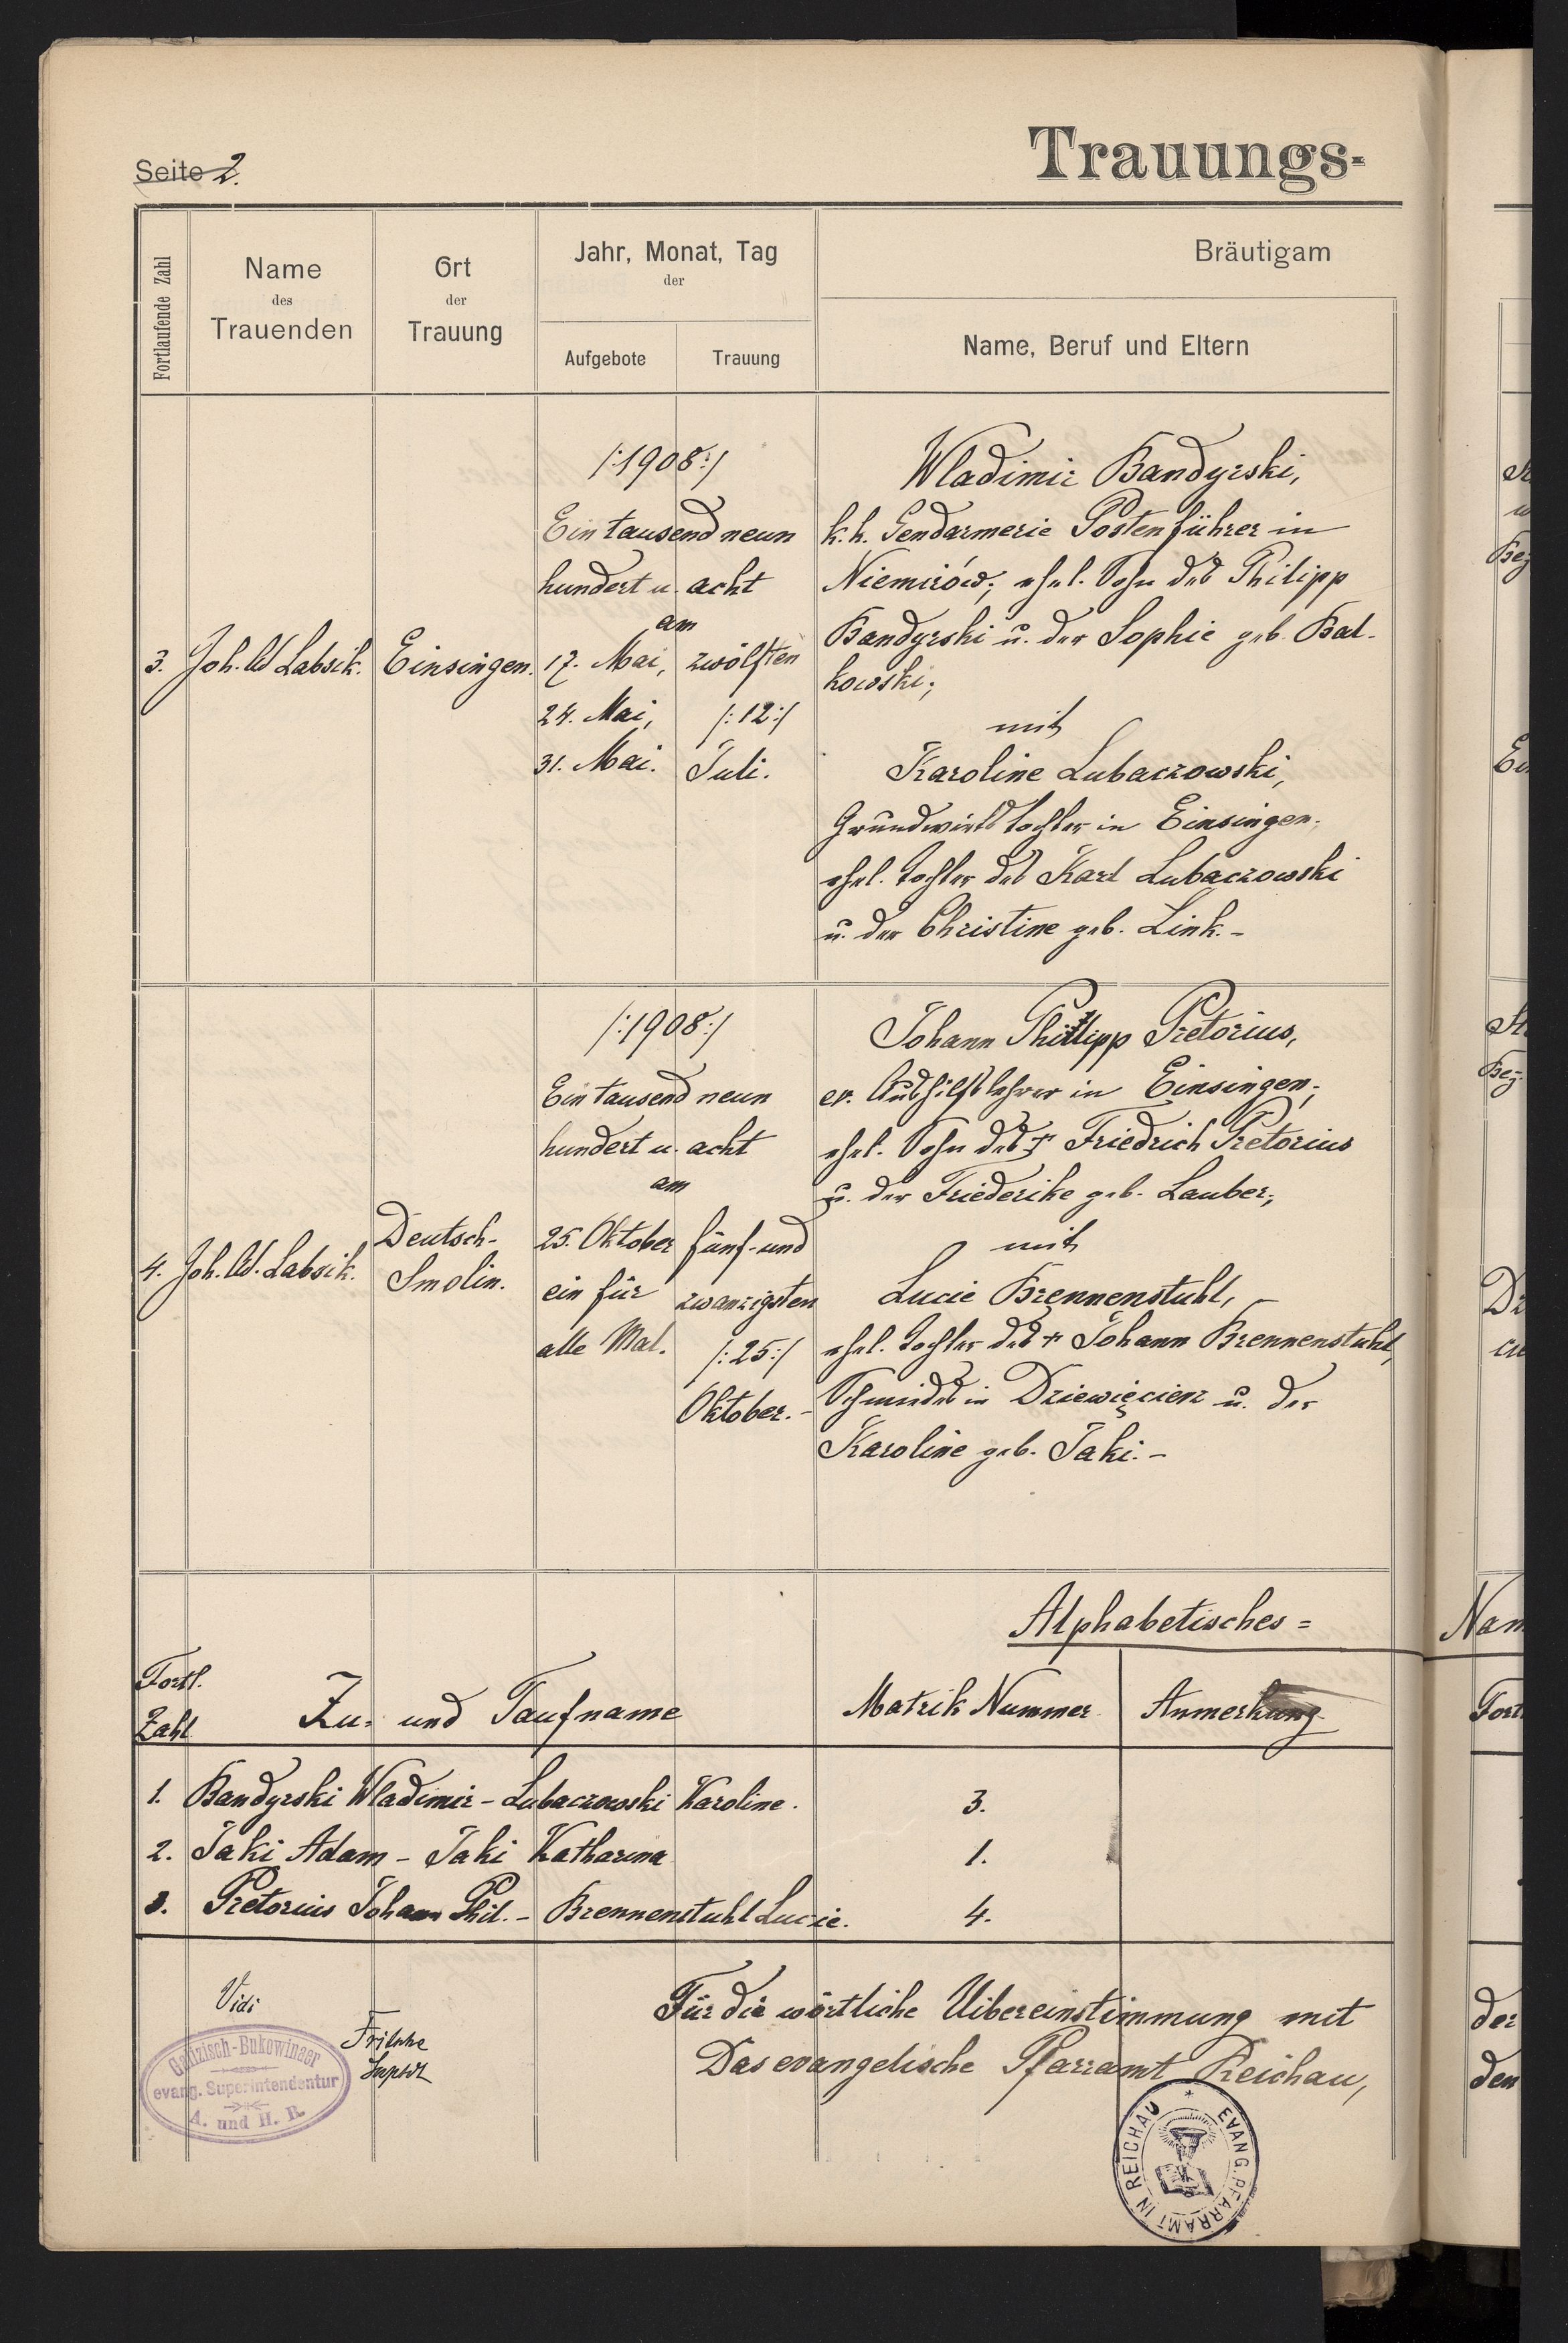 Seite 2.
Trauungs-
Fortlaufende Zahl
Name
des
Trauenden
Ort
der
Trauung
Jahr, Monat, Tag
der
Aufgebote
Trauung
Bräutigam
Name, Beruf und Eltern
3.
Joh. W Labsik.
Einsingen.
/:1908:/
Ein tausend neun
hundert u. acht
am
17. Mai,
24. Mai,
31. Mai.
zwölften
/:12:/
Juli.
Wladimir Bandyrski,
k.k. Gendarmerie Postenführer in
Niemirów; ehel. Sohn des Philipp
Bandyrski u. der Sophie geb. Bal-
kowski;
mit
Karoline Lubaczowski,
Grundwirtstochter in Einsingen.
ehel. Tochter des Karl Lubaczowski
u. der Christine geb. Link.-
4.
Joh. W. Labsik.
Deutsch-
Smolin.
/:1908:/
Ein tausend neun
hundert u. acht
am
25. Oktober
ein für
alle Mal.
fünf-und
zwanzigsten
/:25:/
Oktober.-
Johann Philipp Pretorius,
ev. Aushilfslehrer in Einsingen;
ehel. Sohn des † Friedrich Pretorius
u. der Friederike geb. Lauber;
mit
Lucie Brennenstuhl, -
ehel. Tochter des † Johann Brennenstuhl,
Schmieds in Dziewięcierz u. der
Karoline geb. Jaki.-
Alphabetisches =
Fortl.
Zahl
Zu- und Taufname
Matrik Nummer
Anmerkung
1. Bandyrski Wladimir - Lubaczowski Karoline. 3.
2. Jaki Adam - Jaki Katharina 1.
3. Pretorius Johann Phil. - Brennenstuhl Lucie. 4.
Vidi
Fritsche
Supdt
Galizisch-Bukowinaer
evang. Superintendentur
A. und H. B.
Für die wörtliche Uibereinstimmung mit
Das evangelische Pfarramt Reichau,
* EVANG. PFARRAMT IN REICHAU
Nam
Fort
der
den